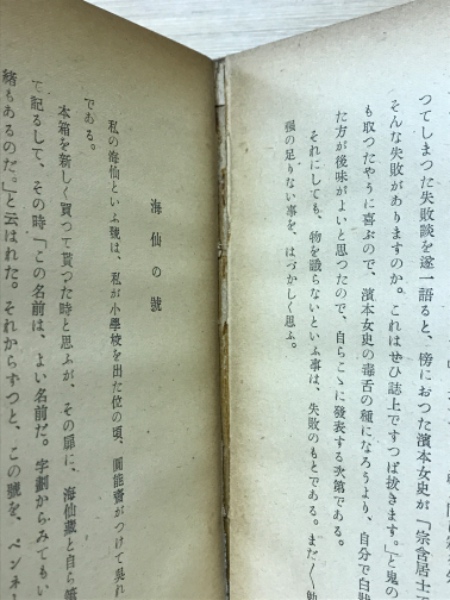 つてしまつた失敗談を逐一語ると、傍におつた濱本女史が「宗含居士
そんな失敗がありますのか。これはぜひ誌上ですつぱ拔きます。」と鬼の
も取つたやうに喜ぶので、濱本女史の毒舌の種になろうより、自分で白狀
た方が後味がよいと思つたので、自らこゝに發表する次第である。
それにしても、物を識らないといふ事は、失敗のもとである。まだ〱勉
强の足りない事を、はづかしく思ふ。
海仙の號
私の海仙といふ號は、私が小學校を出た位の頃、圓能齋がつけて吳れ
である。
本箱を新しく買つて貰つた時と思ふが、その扉に、海仙藏と自ら筆
て記るして、その時「この名前は、よい名前だ。字劃からみてもい
緖もあるのだ。」と云はれた。それからずつと、この號を、ペンネー